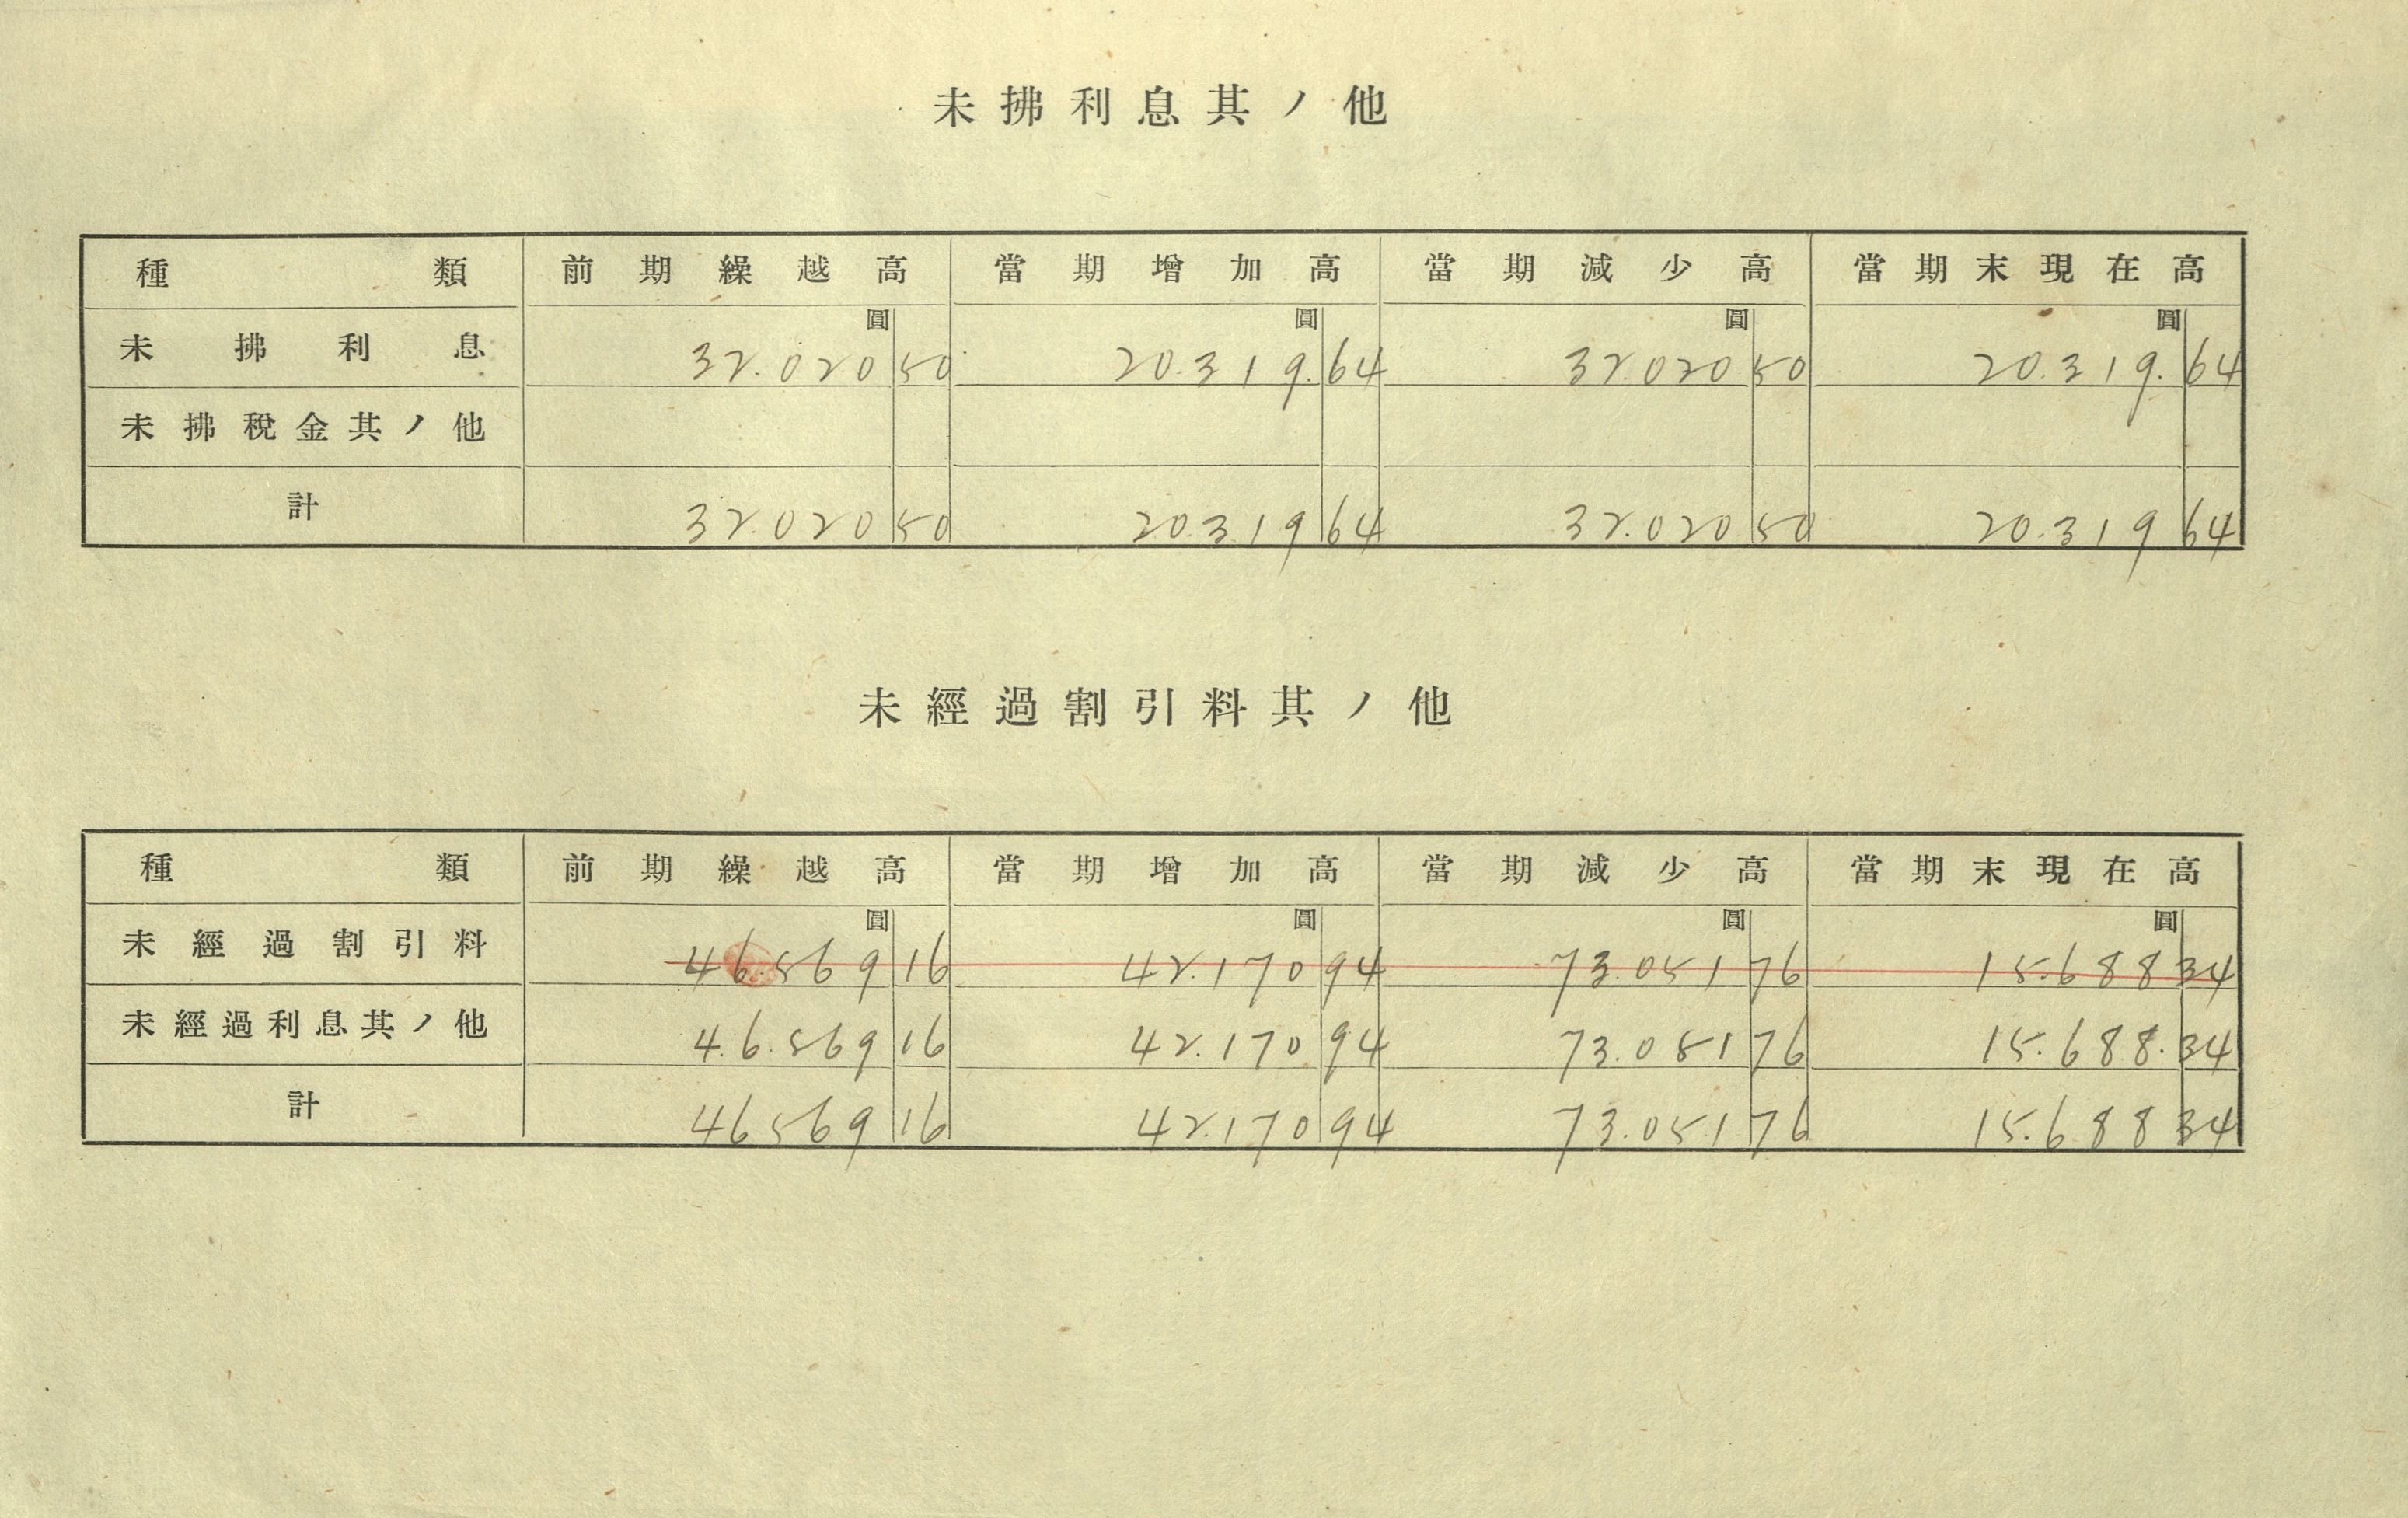 未拂利息其ノ他
種類 前期繰越高 當期增加高 當期減少高 當期末現在高
圓 圓 圓 圓
未拂利息 32.020 50 20.319. 64 32.020 50 20.319. 64
未拂稅金其ノ他
計 32.020 50 20.319 64 32.020 50 20.319 64
未經過割引料其ノ他
種類 前期繰越高 當期增加高 當期減少高 當期末現在高
圓 圓 圓 圓
未經過割引料 46.569 16 42.170 94 73.051 76 15.688 34
未經過利息其ノ他 46.569 16 42.170 94 73.051 76 15.688. 34
計 46569 16 42.170 94 73.051 76 15.688 34